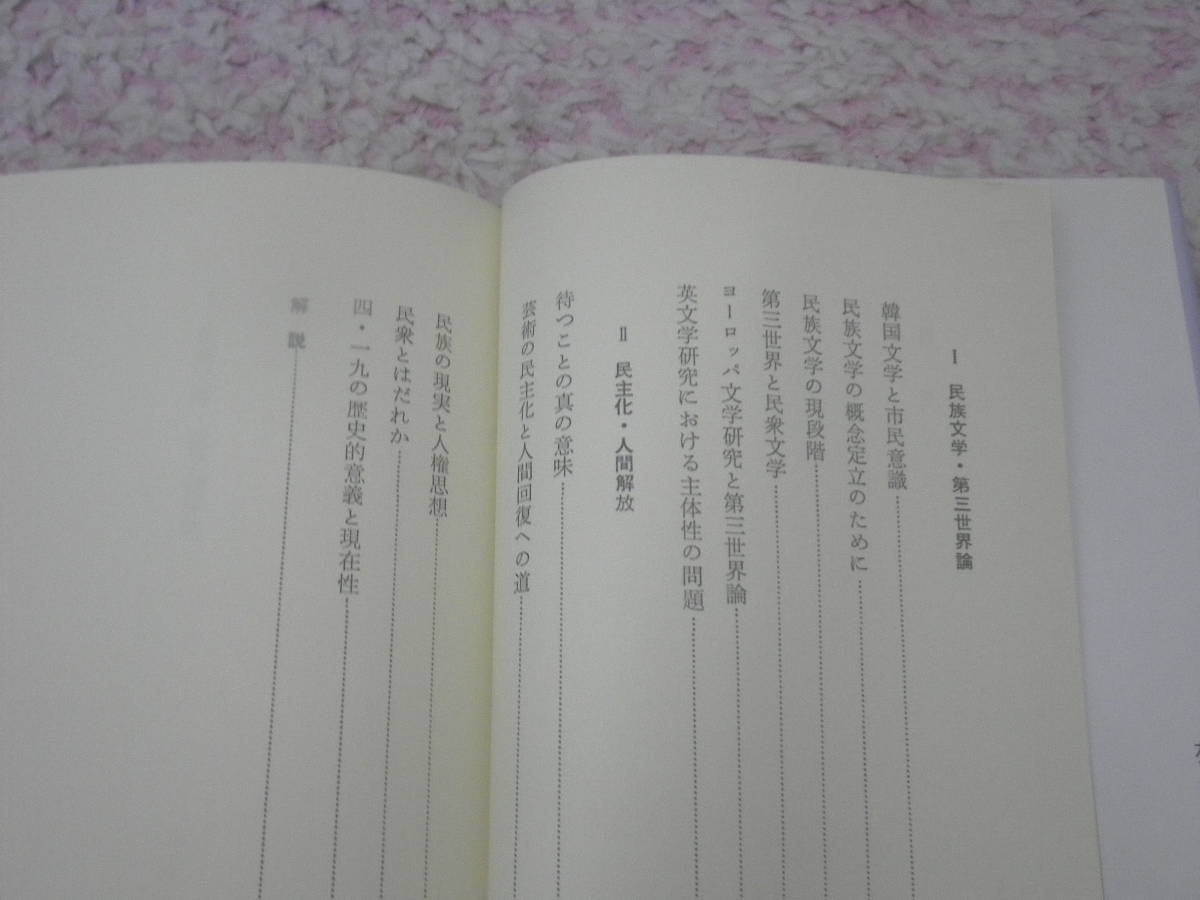 I 民族文学・第三世界論
韓国文学と市民意識
民族文学の概念定立のために
民族文学の現段階
第三世界と民衆文学
ヨーロッパ文学研究と第三世界論
英文学研究における主体性の問題
II 民主化・人間解放
待つことの真の意味
芸術の民主化と人間回復への道
民族の現実と人権思想
民衆とはだれか
四・一九の歴史的意義と現在性
解説